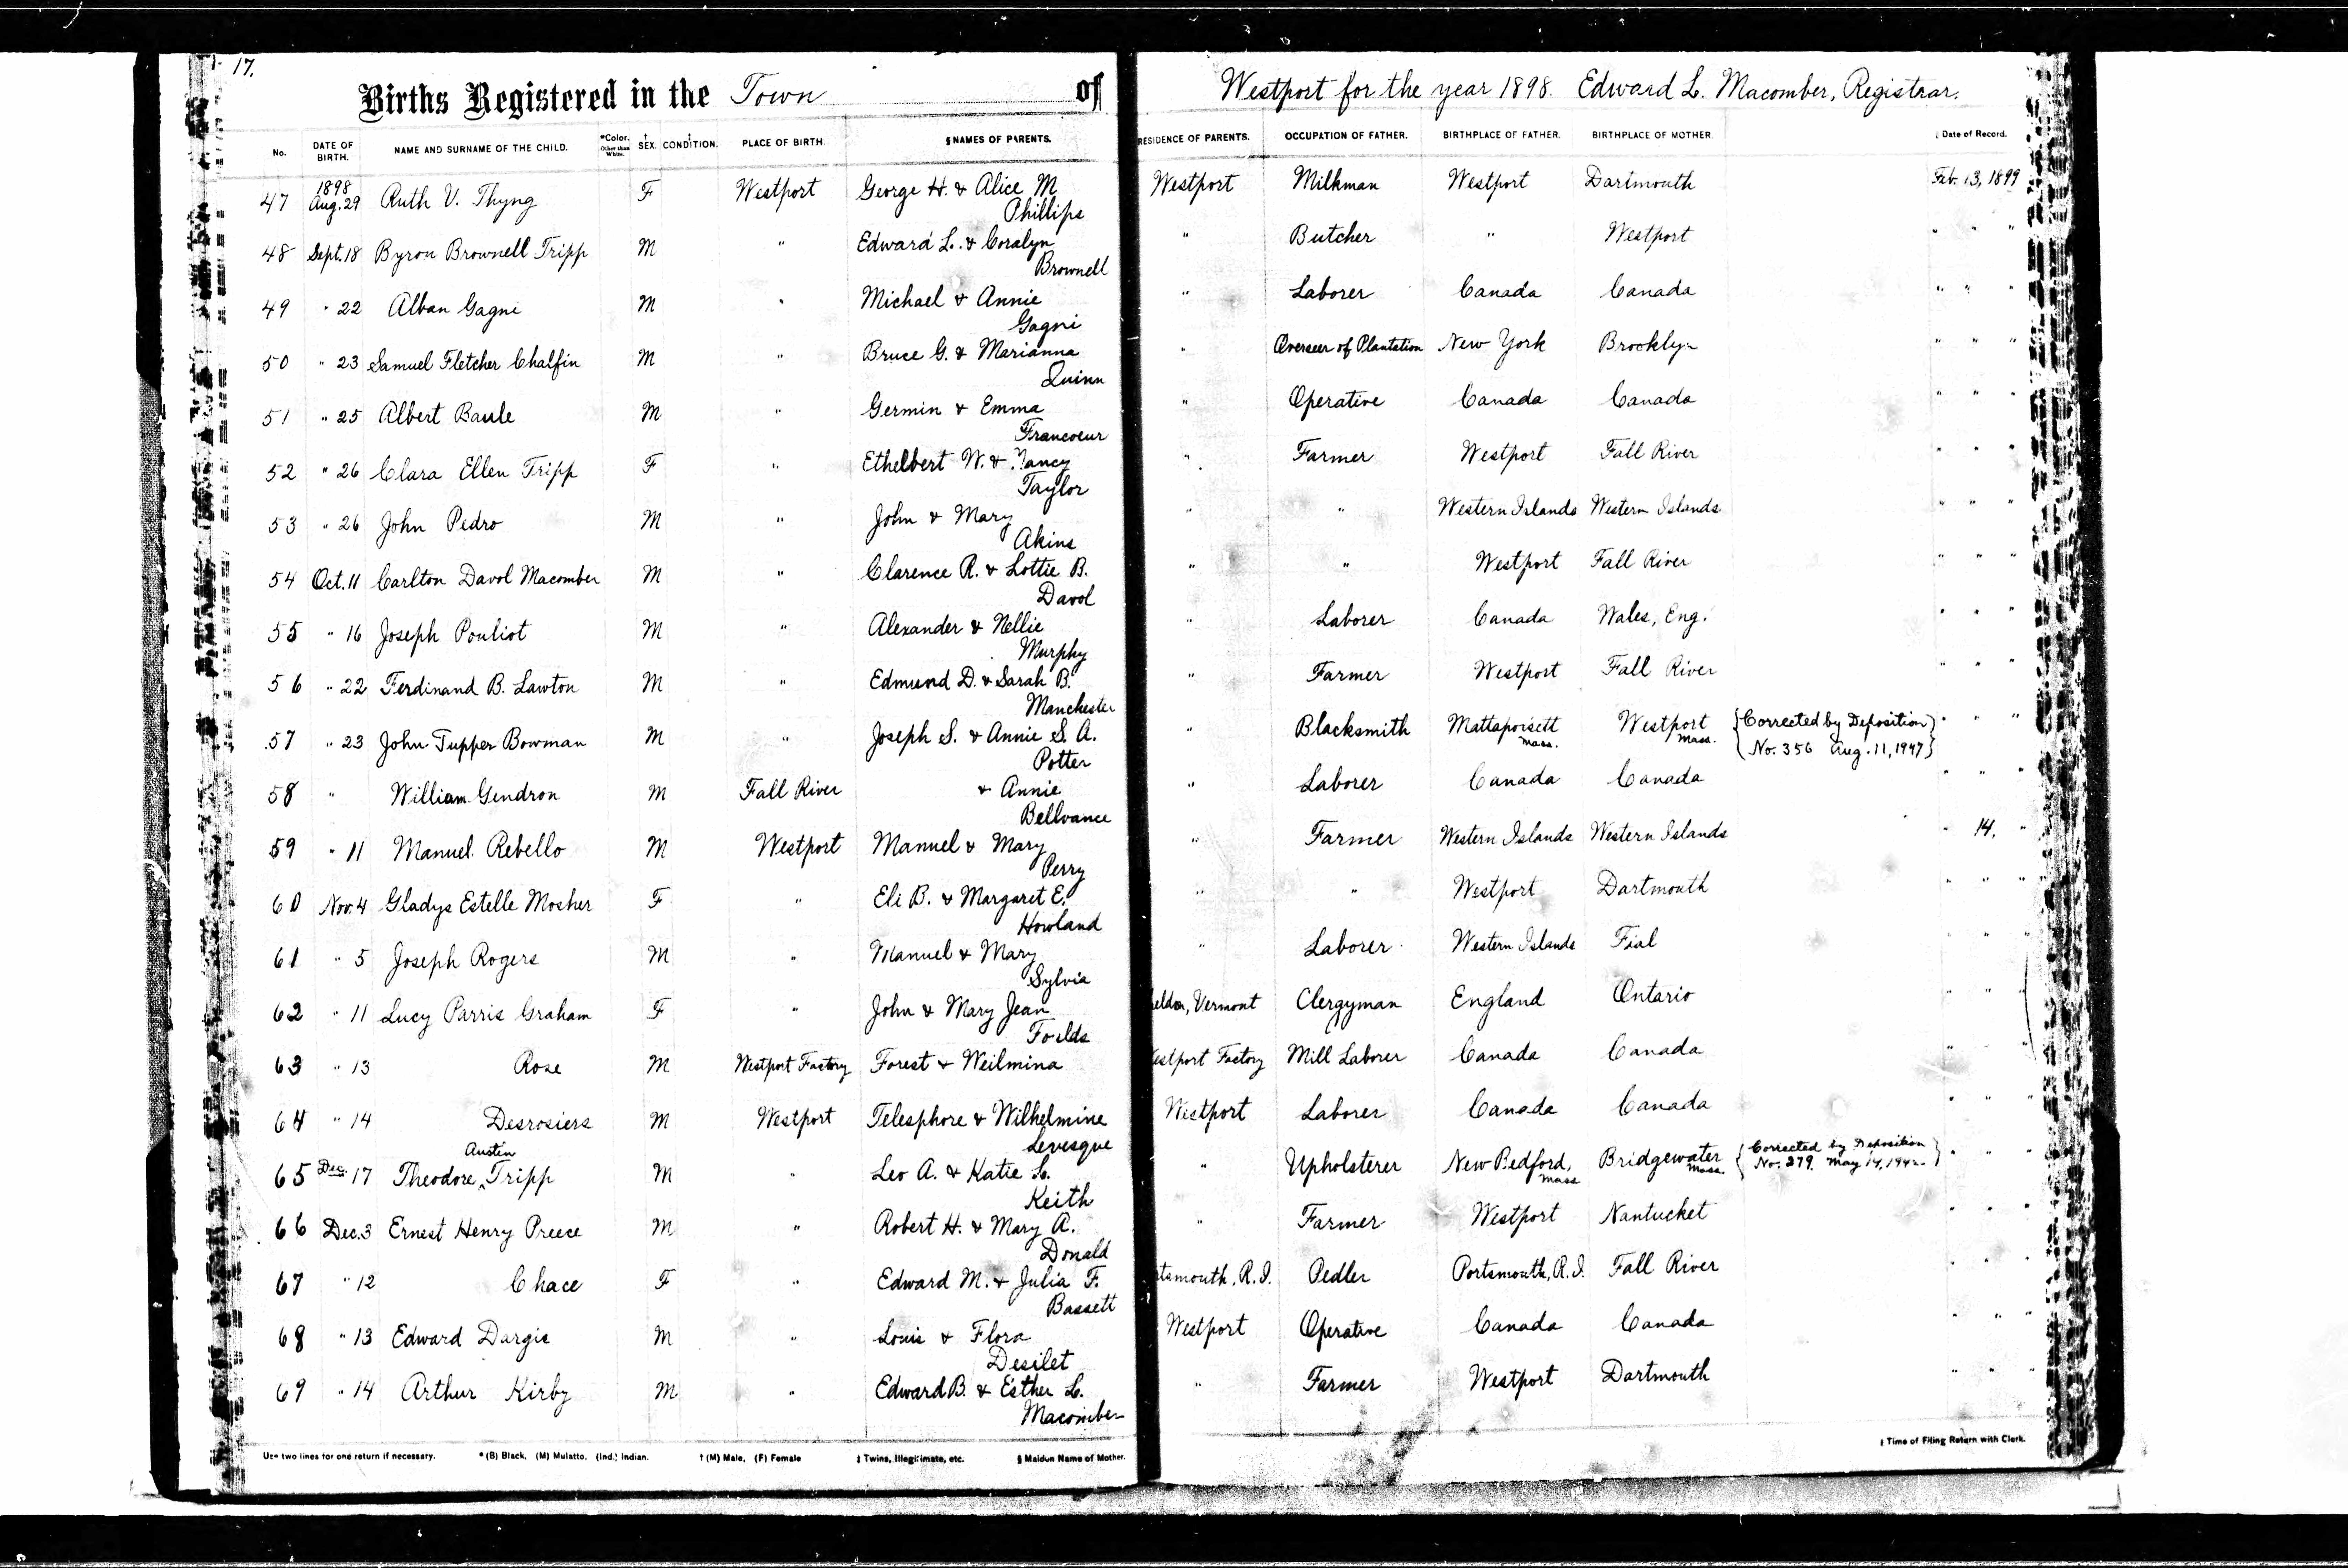 17.
Births Registered in the Town of Westport for the year 1898. Edward L. Macomber, Registrar.
No. DATE OF BIRTH. NAME AND SURNAME OF THE CHILD. *Color. Other than White. † SEX. ‡ CONDITION. PLACE OF BIRTH. § NAMES OF PARENTS. RESIDENCE OF PARENTS. OCCUPATION OF FATHER. BIRTHPLACE OF FATHER. BIRTHPLACE OF MOTHER. Date of Record.
1898
47 Aug. 29 Ruth V. Thyng F Westport George H. & Alice M Westport Milkman Westport Dartmouth Feb. 13, 1899
Phillips
48 Sept. 18 Byron Brownell Tripp M " Edward L. & Coralyn " Butcher " Westport " " "
Brownell
49 " 22 Alban Gagni M " Michael & Annie " Laborer Canada Canada " " "
Gagni
50 " 23 Samuel Fletcher Chalfin M " Bruce G. & Marianna " Overseer of Plantation New York Brooklyn " " "
Quinn
51 " 25 Albert Baule M " Germin & Emma " Operative Canada Canada " " "
Francoeur
52 " 26 Clara Ellen Tripp F " Ethelbert W. & Nancy " Farmer Westport Fall River " " "
Taylor
53 " 26 John Pedro M " John & Mary " " Western Islands Western Islands " " "
Akins
54 Oct. 11 Carlton Davol Macomber M " Clarence R. & Lottie B. " " Westport Fall River " " "
Davol
55 " 16 Joseph Pouliot M " Alexander & Nellie " Laborer Canada Wales, Eng. " " "
Murphy
56 " 22 Ferdinand B. Lawton M " Edmund D. & Sarah B. " Farmer Westport Fall River " " "
Manchester
57 " 23 John Tupper Bowman M " Joseph S. & Annie S. A. " Blacksmith Mattapoisett Mass. Westport Mass. {Corrected by Deposition} " " "
Potter {No. 356 Aug. 11, 1947}
58 " William Gendron M Fall River & Annie " Laborer Canada Canada " " "
Bellvance
59 " 11 Manuel Rebello M Westport Manuel & Mary " Farmer Western Islands Western Islands " 14, "
Perry
60 Nov. 4 Gladys Estelle Mosher F " Eli B. & Margaret E. " " Westport Dartmouth " " "
Howland
61 " 5 Joseph Rogers M " Manuel & Mary " Laborer Western Islands Fial " " "
Sylvia
62 " 11 Lucy Parris Graham F " John & Mary Jean eldon, Vermont Clergyman England Ontario " " "
63 " 13 Rose M Westport Factory Forest & Weilmina estport Factory Mill Laborer Canada Canada " " "
64 " 14 Desrosiers M Westport Telesphore & Wilhelmine Westport Laborer Canada Canada " " "
Levesque
Austin
65 Dec. 17 Theodore ^ Tripp M " Leo A. & Katie L. " Upholsterer New Bedford, Mass Bridgewater Mass. {Corrected by Deposition No. 279. May 14, } " " "
Keith
66 Dec. 3 Ernest Henry Preece M " Robert H. & Mary A. " Farmer Westport Nantucket " " "
Donald
67 " 12 Chace F " Edward M. & Julia F. tsmouth, R.I. Pedler Portsmouth, R.I. Fall River " " "
Bassett
68 " 13 Edward Dargis M " Louis & Flora Westport Operative Canada Canada " " "
Desilet
69 " 14 Arthur Kirby M " Edward B. & Esther L. " Farmer Westport Dartmouth " " "
Macomber
Use two lines for one return if necessary. * (B) Black, (M) Mulatto, (Ind.) Indian. † (M) Male, (F) Female ‡ Twins, Illegitimate, etc. § Maiden Name of Mother. Time of Filing Return with Clerk.